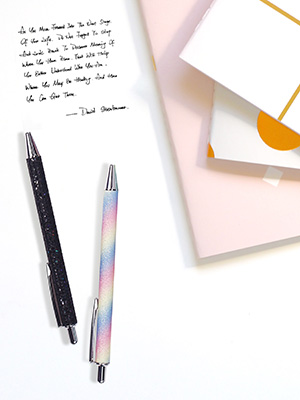 As You Move Forward Into The Next Stage
Of Your Life. Do Not Forget To Stop
And Look Back To Discover Meaning Of
Where You Have Been. That Will Help
You Better Understand Who You Are.
Where You May Be Heading And How
You Can Get There.
— David